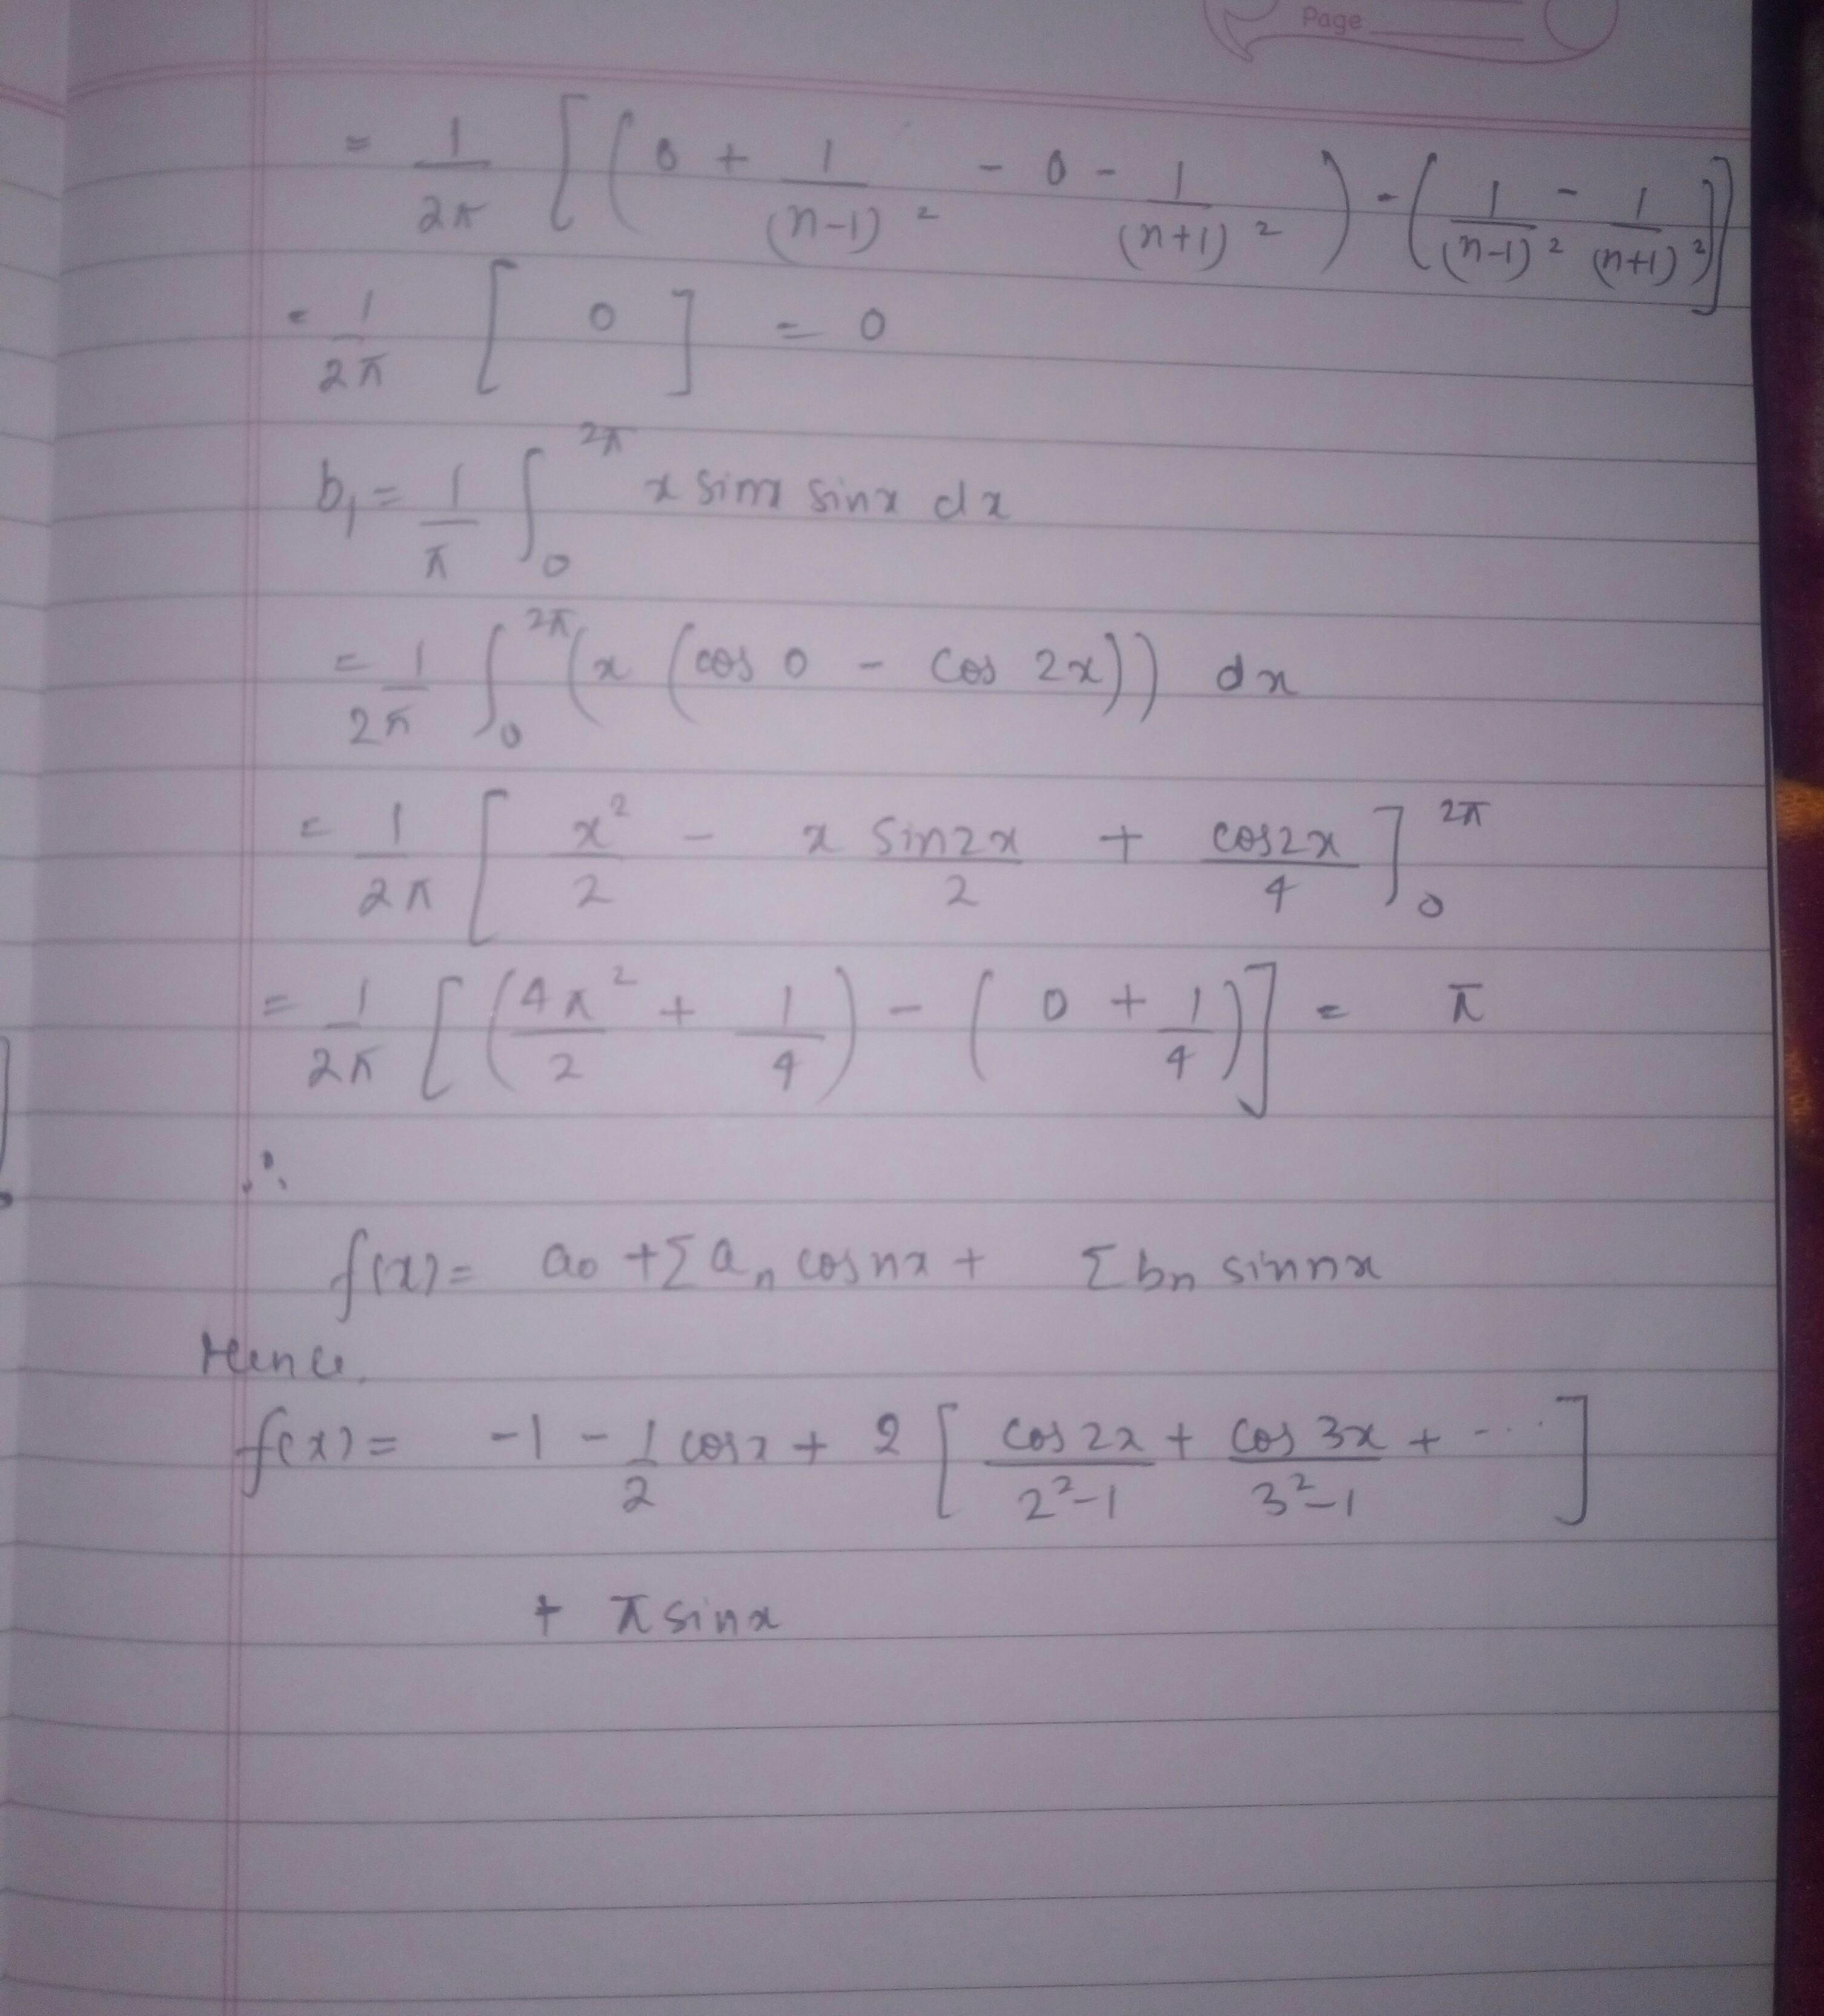 Page
= 1/2π [(0 + 1/(n-1)² - 0 - 1/(n+1)²) - (1/(n-1)² - 1/(n+1)²)]
= 1/2π [ 0 ] = 0
b₁ = 1/π ∫₀^2π x sinx sinx dx
= 1/2π ∫₀^2π (x (cos 0 - cos 2x)) dx
= 1/2π [ x²/2 - x sin2x/2 + cos2x/4 ]₀^2π
= 1/2π [(4π²/2 + 1/4) - (0 + 1/4)] = π
∴
f(x) = a₀ + Σ aₙ cosnx + Σ bₙ sinnx
Hence,
f(x) = -1 - 1/2 cosx + 2 [ cos2x/2²-1 + cos 3x/3²-1 + ... ]
+ π sinx